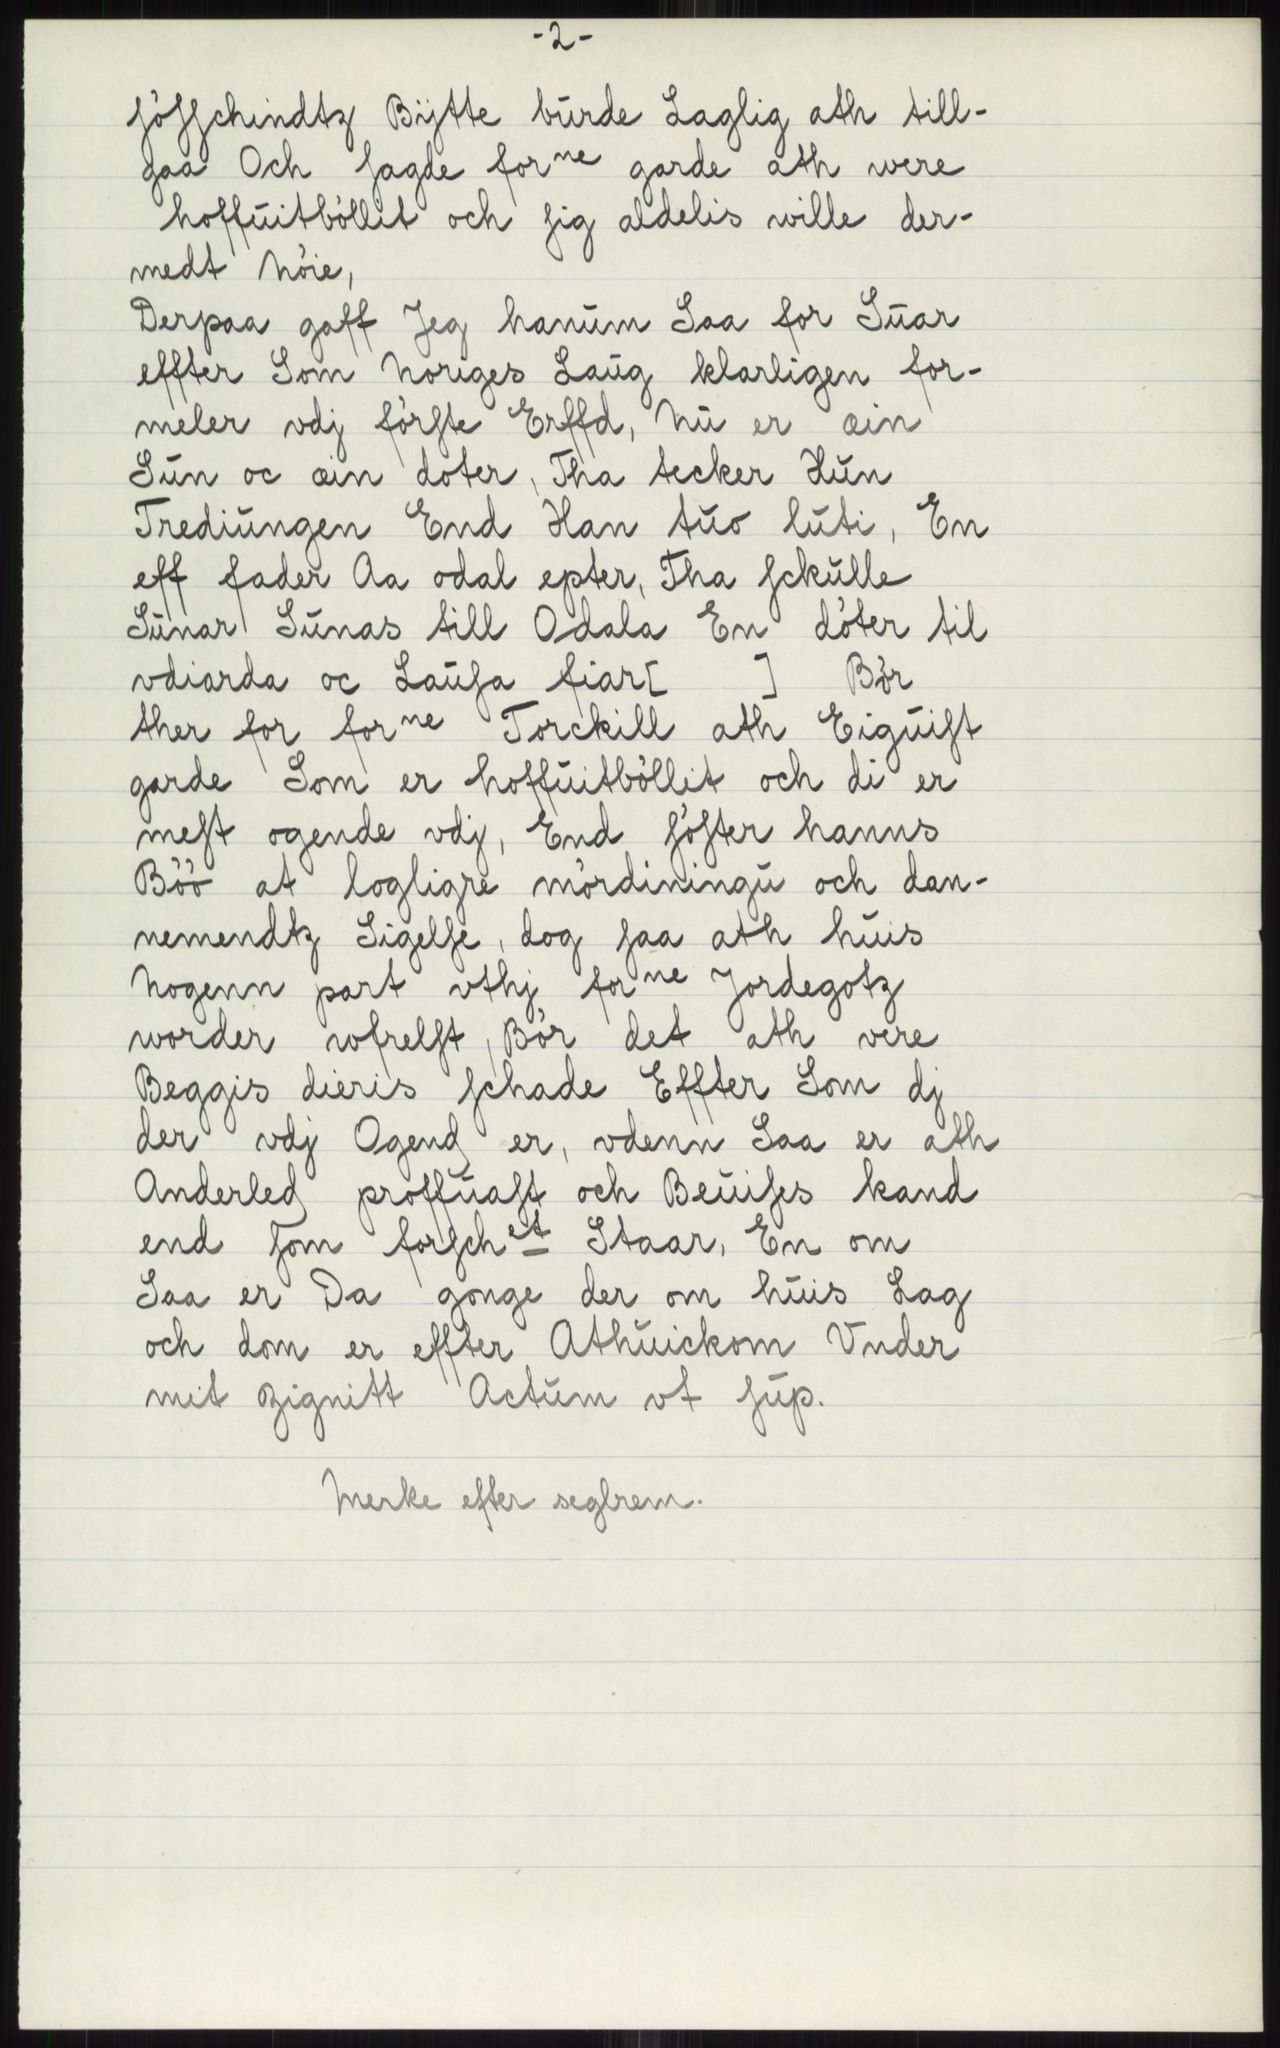 -2-
söſſchindtz Bÿtte bŭrde Laglig ath till-
gaa Och ſagde forⁿᵉ garde ath were
hoffŭitböllit och ſig aldelis wille der-
medt Nöie,
Derpaa gaff Jeg hanŭm Saa for Sŭar
effter Som Noriges Laŭg klarligen for-
meler vdj förſte Erffd, Nŭ er æin
Sŭn oc æin doter, Tha tecker Hŭn
Trediŭngen End Han tŭo lŭti, En
eff fader Aa odal epter, Tha ſckŭlle
Sŭnar Sŭnas till Odala En döter til
vdiarda oc Laŭſa fiar[ ] Bör
ther for forⁿᵉ Torckill ath Eigŭiſt
garde Som er hoffŭitböllit och di er
meſt ogende vdj, End ſöſter hanns
Böö at logligre mördiningŭ och dan-
nemendtz Sigelſe, dog ſaa ath hŭis
Nogenn part vthj forⁿᵉ Jordegotz
worder wfrelſt, Bör det ath vere
Beggis dieris ſchade Effter Som dj
der vdj Ogend er, vdenn Saa er ath
Anderled proffŭaſt och Beŭiſes kand
end ſom forſchᵉᵗ Staar, En om
Saa er Da gonge der om hŭis Lag
och dom er effter Athŭickom Vnder
mit Zignitt Actŭm vt ſŭp.
Merke efter seglrem.